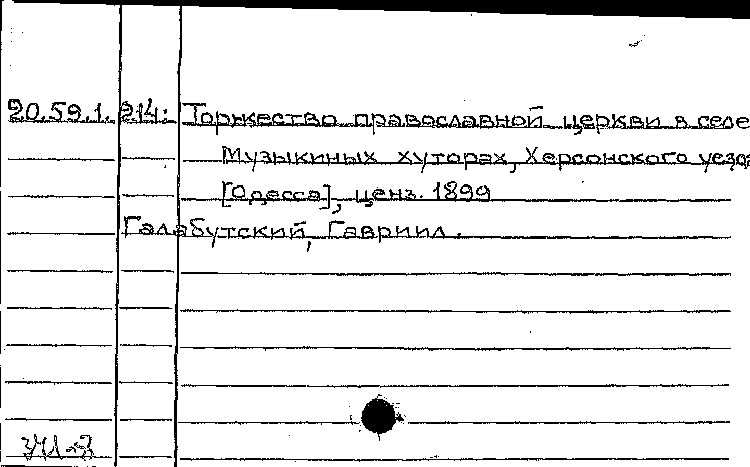 20.59.1. 214: Торжество православной церкви в селе
Музыкиных хуторах, Херсонского уезда
[Одесса], ценз. 1899
Галабутский, Гавриил.